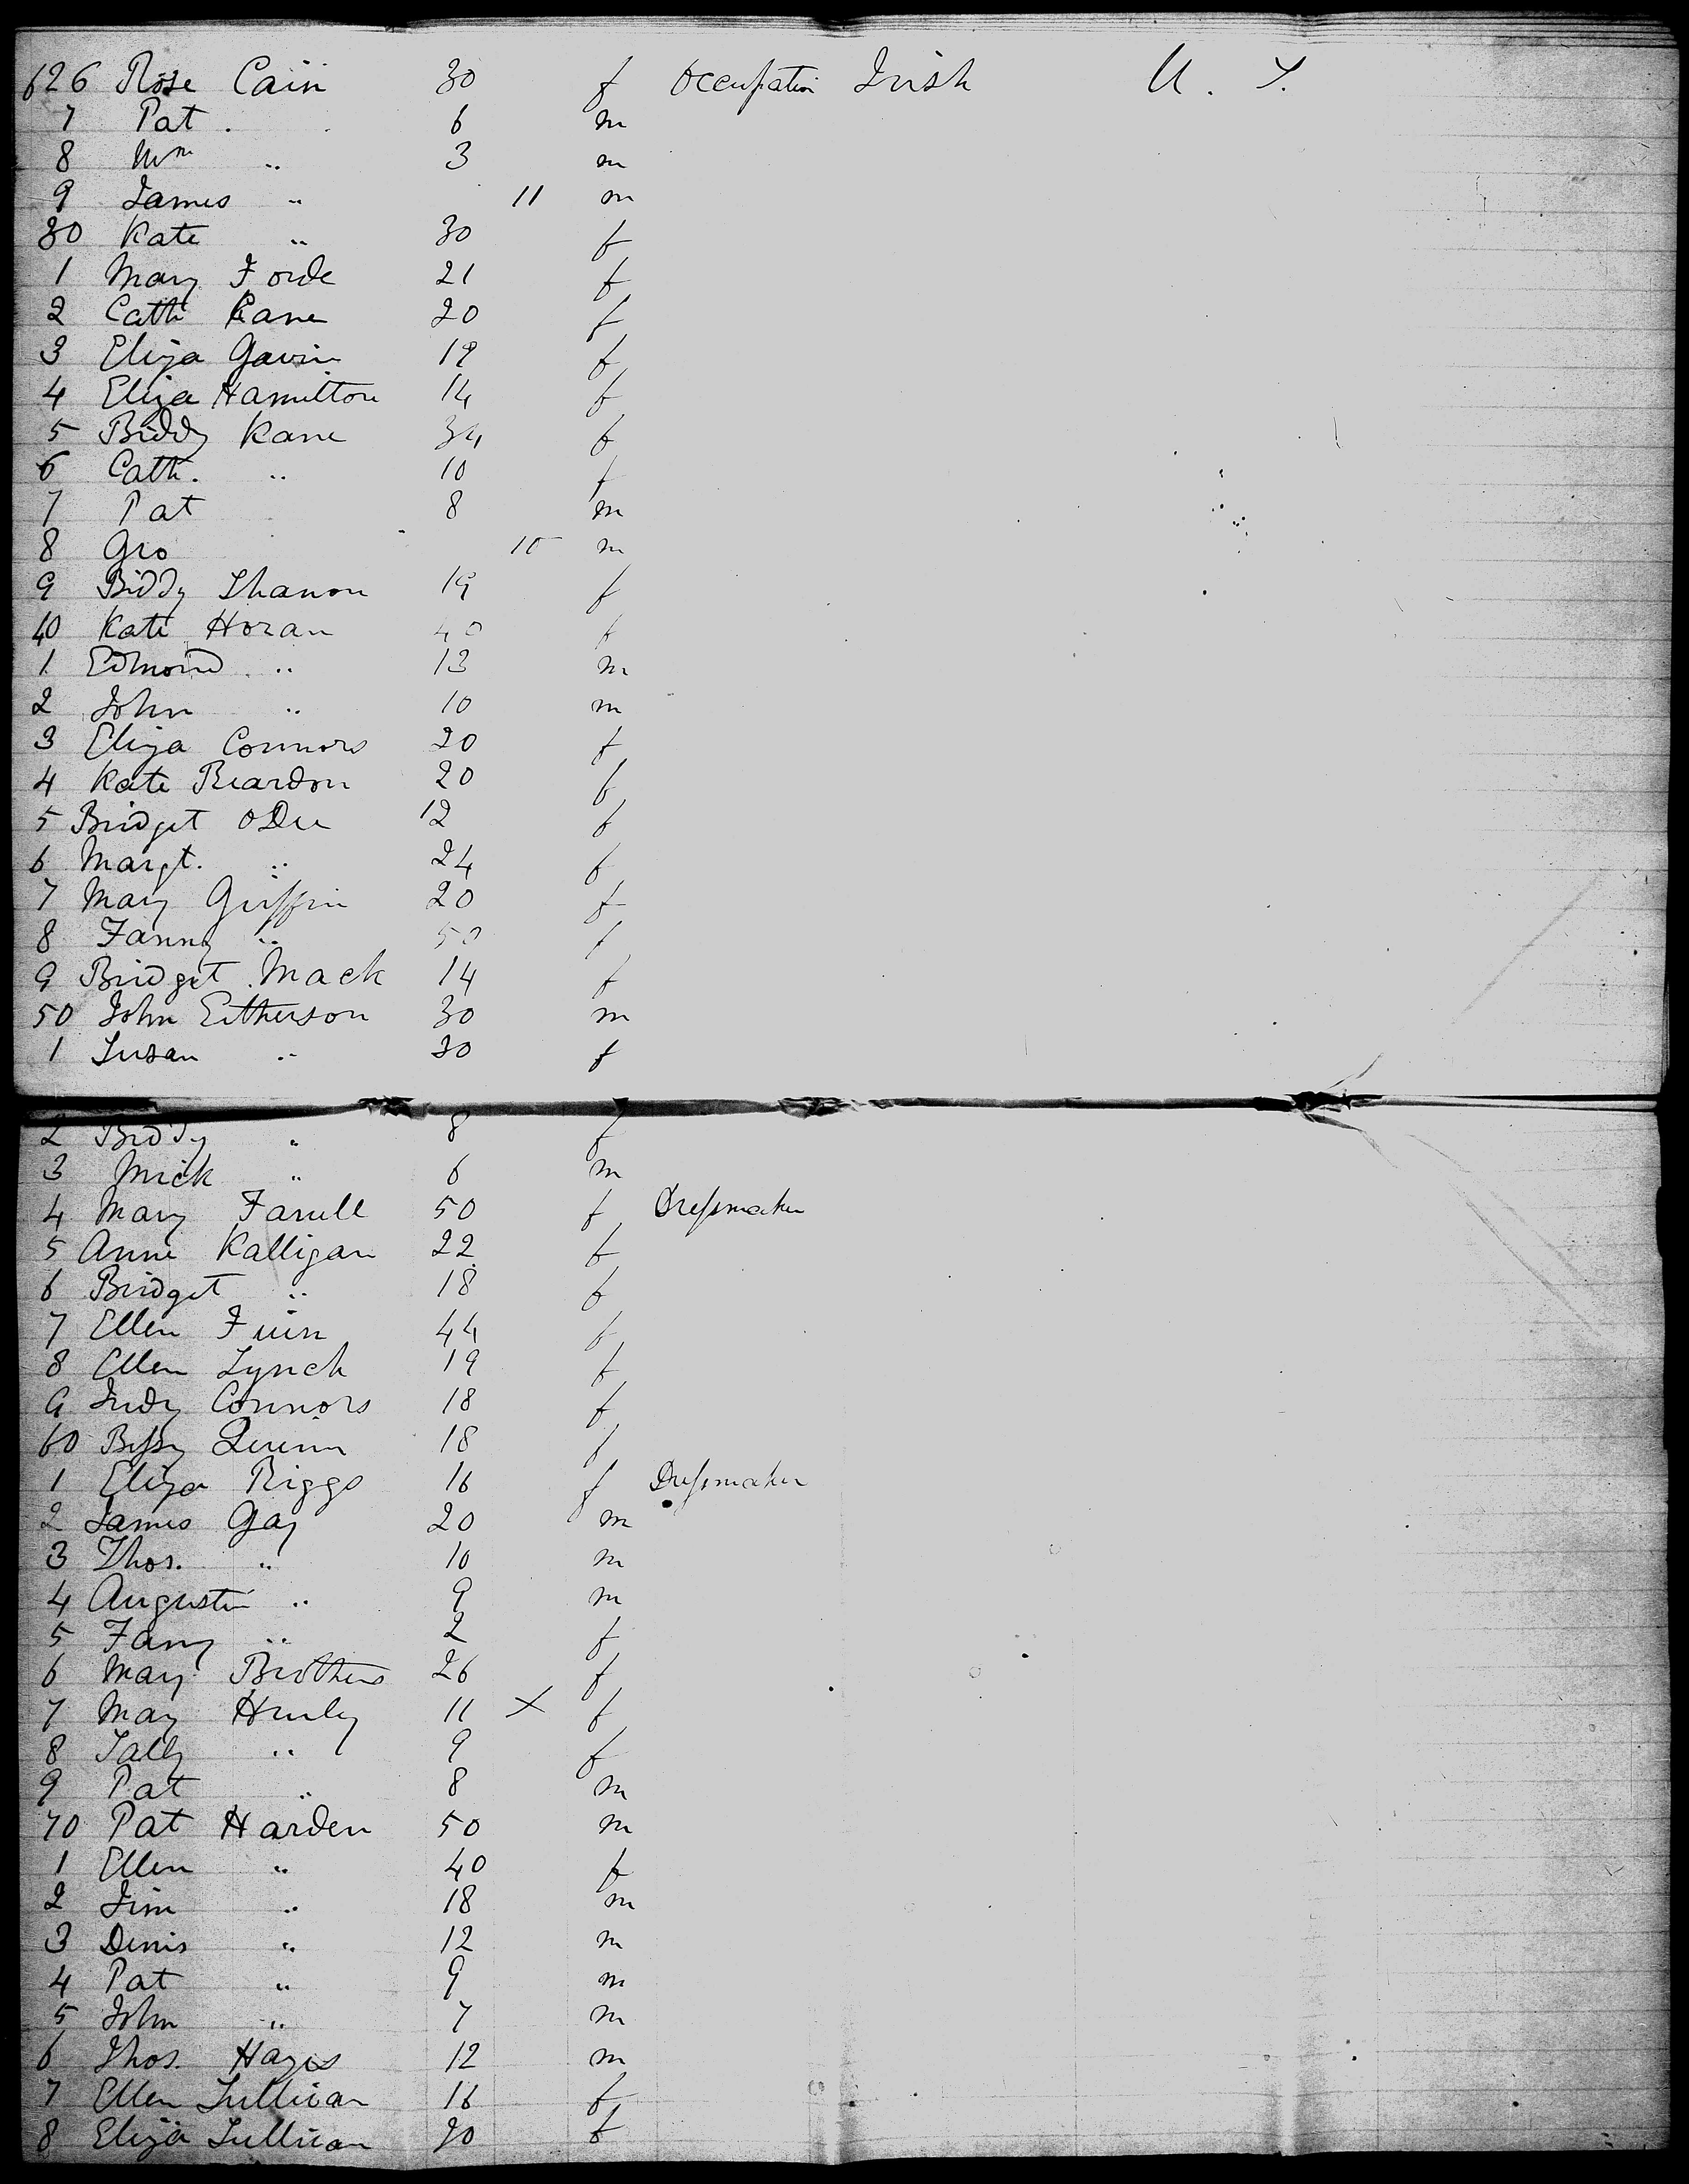 626 Rose Cain 30 f Occupation Irish U. S.
7 Pat . 6 m
8 Wm " 3 m
9 James " 11 m
30 Kate " 30 f
1 Mary Forde 21 f
2 Cath Kane 20 f
3 Eliza Gavin 19 f
4 Eliza Hamilton 14 f
5 Biddy Kane 34 f
6 Cath. " 10 f
7 Pat 8 m
8 Geo 10 m
9 Biddy Shanon 19 f
40 Kate Horan 40 f
1 Edmond " 13 m
2 John " 10 m
3 Eliza Connors 20 f
4 Kate Reardon 20 f
5 Bridget ODee 12 f
6 Margt. " 24 f
7 Mary Griffin 20 f
8 Fanny " 50 f
9 Bridget Mack 14 f
50 John Eitherson 30 m
1 Susan " 30 f
2 Biddy " 8 f
3 Mick " 6 m
4 Mary Farrell 50 f Dressmaker
5 Anne Kalligan 22 f
6 Bridget " 18 f
7 Ellen 44 f
8 Ellen Lynch 19 f
9 Judy Connors 18 f
60 Bessy Quinn 18 f
1 Eliza Riggs 16 f Dressmaker
2 James Gay 20 m
3 Thos. " 10 m
4 Augustin " 9 m
5 Fany " 2 f
6 Mary Brothers 26 f
7 Mary Hurley 11 X f
8 Sally " 9 f
9 Pat " 8 m
70 Pat Harden 50 m
1 Ellen " 40 f
2 Jim " 18 m
3 Denis " 12 m
4 Pat " 9 m
5 John " 7 m
6 Thos. Hayes 12 m
7 Ellen Sullivan 16 f
8 Eliza Sullivan 20 f